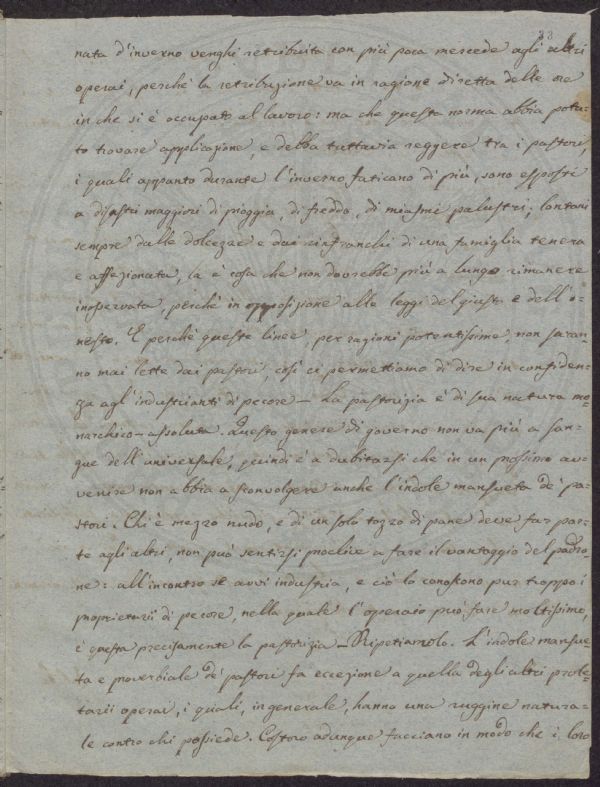 33
nata d'inverno venghi retribuita con più poca mercede agli altri
operai, perchè la retribuzione va in ragione diretta delle ore
in che si è occupato al lavoro: ma che questa norma abbia potu-
to trovare applicazione, e debba tuttavia reggere tra i pastori,
i quali appunto durante l'inverno faticano di più, sono esposti
a disastri maggiori di pioggia, di freddo, di miasmi palustri, lontani
sempre dalle dolcezze e dai rinfranchi di una famiglia tenera
e affezionata, la è cosa che non dovrebbe più a lungo rimanere
inosservata, perchè in opposizione alle leggi del giusto e dell'o-
nesto. E perchè queste linee, per ragioni potentissime, non saran-
no mai lette dai pastori, così ci permettiamo di dire in confiden-
za agl'industrianti di pecore – La pastorizia è di sua natura mo-
narchico-assoluta. Questo genere di governo non va più a san-
gue dell'universale, quindi è a dubitarsi che in un prossimo av-
venire non abbia a sconvolgere anche l'indole mansueta de' pa-
stori. Chi è mezzo nudo, e di un solo tozzo di pane deve far par-
te agli altri, non può sentirsi proclive a fare il vantaggio del padro-
ne: all'incontro se avvi industria, e ciò lo conoskono pur troppo i
proprietarii di pecore, nella quale l'operaio può fare moltissimo,
è questa precisamente la pastorizia – Ripetiamolo. L'indole mansue-
ta e proverbiale de' pastori fa eccezione a quella degli altri prole-
tarii operai, i quali, in generale, hanno una ruggine natura-
le contro chi possiede. Costoro adunque facciano in modo che i loro